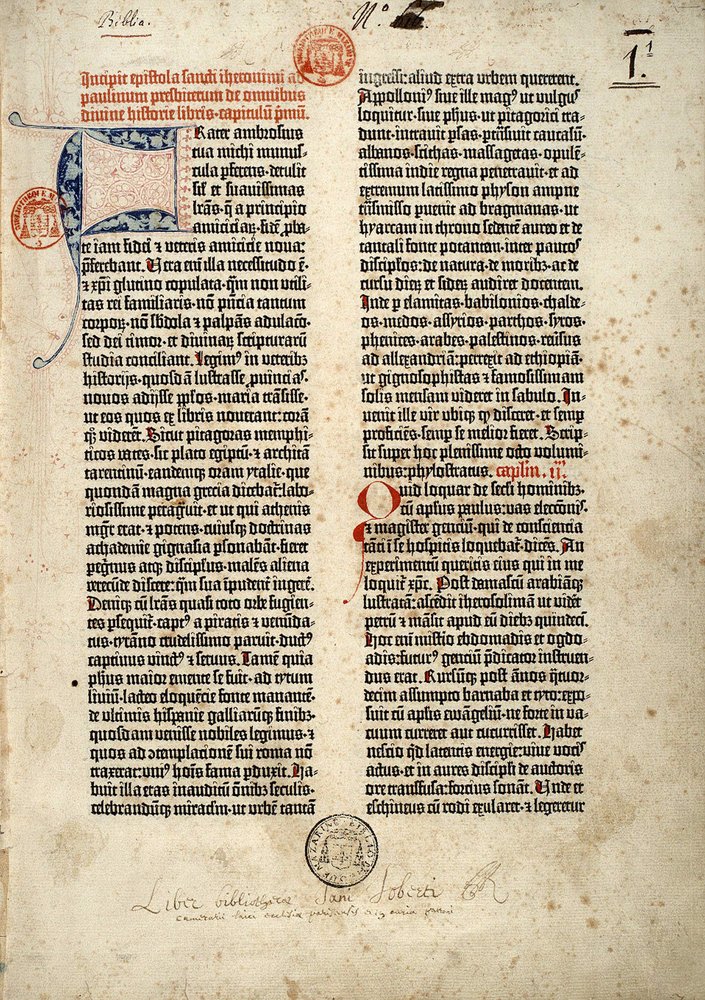 Biblia.
N.º
1.
1
Incipit epistola sancti iheronimi ad
paulinum presbiterum de omnibus
divine historie libris·capitulũ p̃mũ.
Frater ambrosius
tua michi munus-
cula p̃ferens·detulit
sil' et suavissimas
lr̃as·q̃ a principio
amiciciaꝝ·fidẽ ꝓba-
te iam fidei et veteris amicicie nova:
p̃ferebant. Vera em̃ illa necessitudo ẽ·
et xp̃i glutino copulata·qm̃ non utili-
tas rei familiaris·nõ pñcia tantum
corpoꝝ·nõ s̃bdola et palpãs adulacõ·
sed dei timor·et divinaꝝ scripturarũ
studia conciliant. Legimꝰ in veteribꝫ
historijs·quosdã lustrasse ꝓuincias·
novos adijsse pp̃los·maria trãsisse·
ut eos quos ex libris noverant: corã
qꝫ viderẽt. Sicut pitagoras memphi-
ticos vates·sic plato egiptũ·et architã
tarentinũ·eandemqꝫ oram ytalie·que
quondã magna grecia dicebat̃: labo-
riosissime pegrauit·et ut qui athenis
mgr̃ erat·et potens·cuiusqꝫ doctrinas
achademie gignasia ꝑsonabãt·fieret
peginus atqꝫ discipulus·malẽs aliena
verecũde discere: qm̃ sua ĩpudent̃ ingerẽ.
Deniqꝫ cũ lr̃as quasi toto orbe fugien-
tes ꝑsequit̃·captꝰ a piratis et venũda-
tus·tyrãno crudelissimo paruit·ductꝰ
captivus vinctꝰ et servus. Tamẽ quia
ph̃us maior emente se fuit·ad tytum
livium·lacteo eloquẽcie fonte manantẽ·
de ultimis hispanie galliarũqꝫ finibꝫ·
quosdam venisse nobiles legimus·et
quos ad cõtemplacionẽ sui roma nõ
traxerat: unꝰ hoĩs fama ꝑduxit. Ha-
buit illa etas inauditũ õnibꝫ seculis·
celebrandũqꝫ miraclm̃·ut urbẽ tantã
ingressi: aliud extra urbem quererent.
Appolloniꝰ sive ille magꝰ ut vulgꝰ
loquitur·sive ph̃us·ut pitagorici tra-
dunt·intravit p̃sas·ptrãsivit caucasũ·
albanos·scithas·massagetas·opulẽ-
tissima indie regna penetravit·et ad
extremum latissimo physon ampne
trãsmisso ꝑvenit ad bragmanas·ut
hyarcam in throno sedentẽ aureo et de
tantali fonte potantem·inter paucos
discipl̃os: de natura·de moribꝫ·ac de
cursu dieꝝ et sideꝝ audiret docentem.
Inde ꝑ elamitas·babilonios·chalde-
os·medos·assyrios·parthos·syros·
phenices·arabes·palestinos·reversus
ad allexandriã: perrexit ad ethiopiã·
ut gignosophistas et famosissimam
solis mensam videret in sabulo. In-
venit ille vir ubiqꝫ qđ disceret·et semꝑ
proficiẽs·semꝑ se melior fieret. Scrip-
sit super hoc plenissime octo volumi-
nibus: phylostratus. caplm̃. ij.
Quid loquar de secl'i hominibꝫ·
cũ apl̃us paulus: vas electõnis·
et magister genciũ·qui de consciencia
tãti ĩ se hospitis loquebat̃·dicẽs. An
experimentũ queritis eius qui in me
loquit̃ xp̃c. Post damascũ arabiãqꝫ
lustratã: ascẽdit iherosolimã ut viderꝫ
petrũ et mãsit apud eũ diebꝫ quindeci.
Hoc em̃ misterio ebdomadis et ogdo-
adis: futurꝰ genciũ p̃dicator instruen-
dus erat. Rursũqꝫ post ãnos q̃tuor-
decim assumpto barnaba et tyto: expo-
suit cũ apl̃is ewãgeliũ·ne forte in va-
cuum curreret aut cucurrisset. Habet
nescio q̃d latentis energie: vive vocis
actus·et in aures discipl̃i de auctoris
ore transfusa: forcius sonãt. Unde et
eschineus cũ rodi exularet·et legeretur
Liber bibliothecæ Sani Joberti